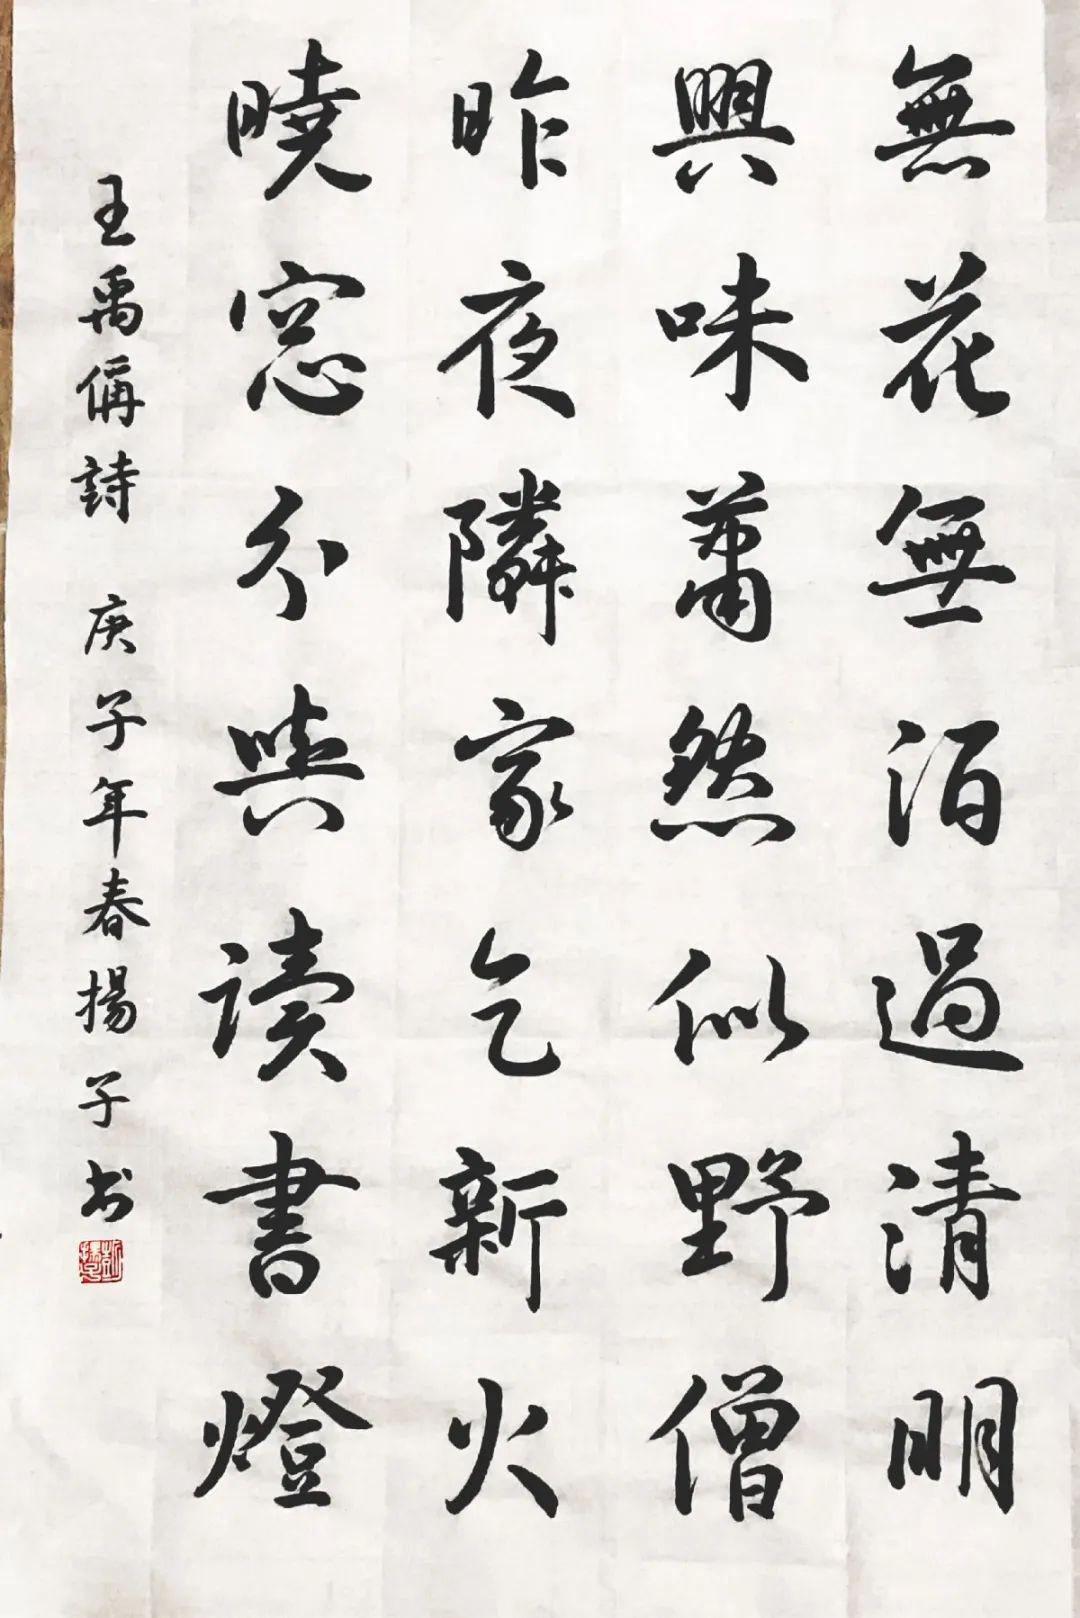 無花無酒過清明
興味蕭然似野僧
昨夜隣家乞新火
曉窓分與讀書燈
王禹偁詩 庚子年春揚子书